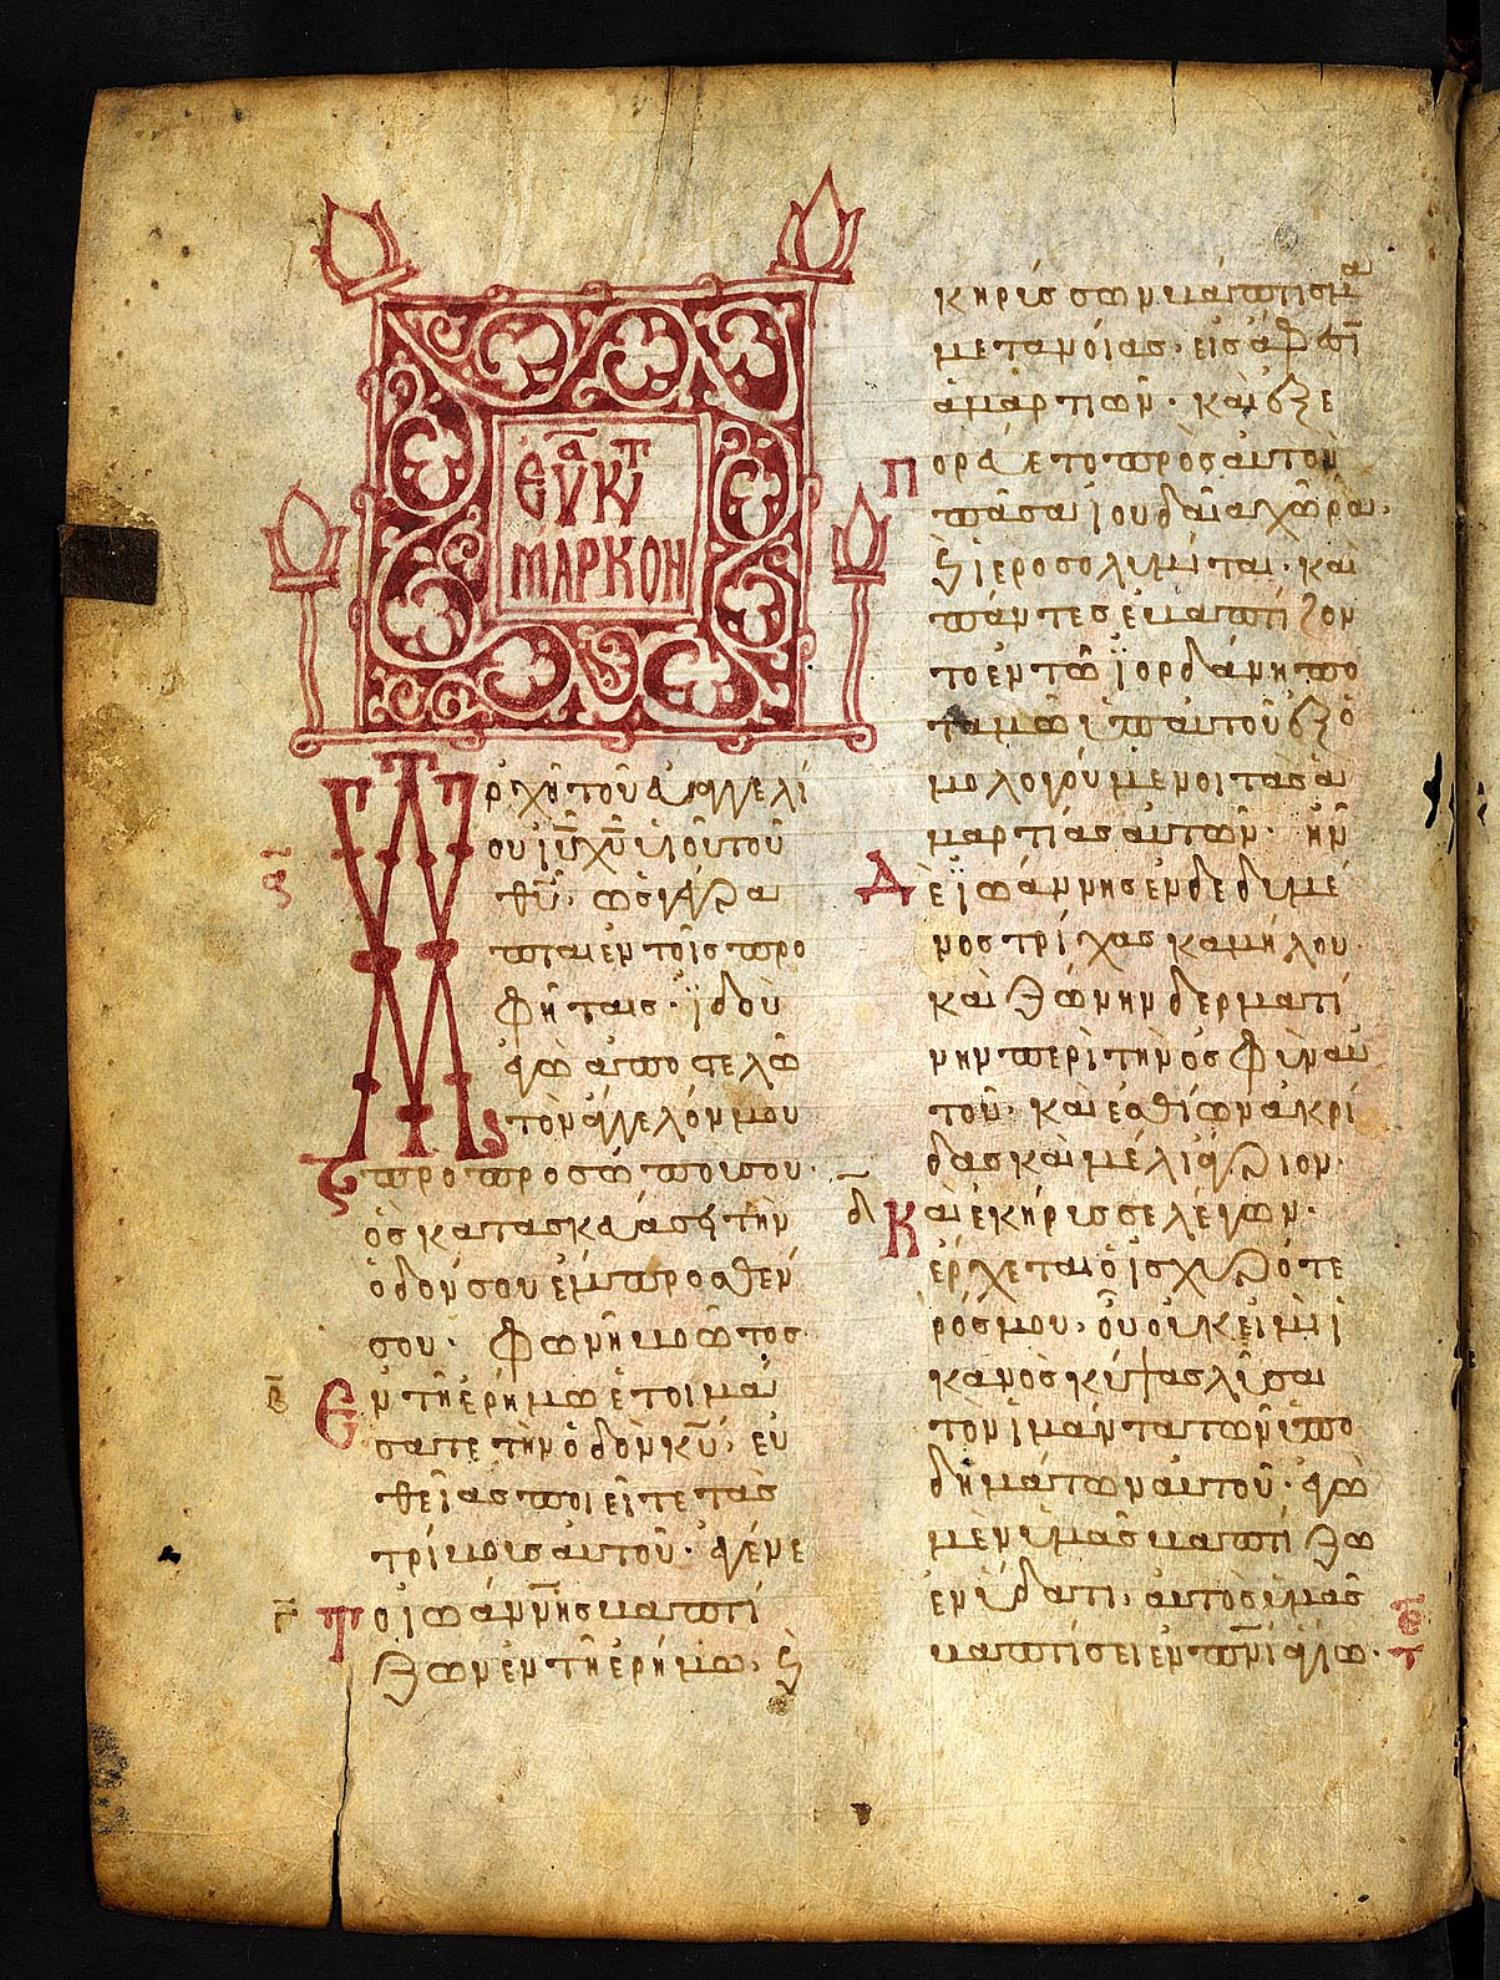 ΕΥΑ ΚΤ
ΜΑΡΚΟΝ
Ἀρχὴ τοῦ εὐαγγελί
ου ἰυ χυ υἱοῦ τοῦ
α
θυ. ὡς γέγρα
πται ἐν τοῖς προ
φήταις· ἰδοὺ
ἐγὼ ἀποστελῶ
τὸν ἄγγελόν μου
προ προσώπου σου·
ὃς κατασκευάσει τὴν
ὁδόν σου ἔμπροσθέν
σου· φωνὴ βοῶντος
β
Ἐν τῆ ἐρήμω ἑτοιμά
σατε τὴν ὁδὸν κυ, εὐ
θείας ποιεῖτε τὰς
τρίβους αὐτοῦ· ἐγένε
γ
Το ἰωάννης βαπτί
ζων ἐν τῆ ἐρήμω, ϗ
κηρύσσων βάπτισμα
μετανοίας· εἰς ἄφεσιν
ἁμαρτιῶν· καὶ ἐξε
Πορεύετο πρὸς αὐτὸν
πᾶσα ἰουδαία χώρα,
ϗ ἱεροσολυμῖται· καὶ
πάντες ἐβαπτίζον
το ἐν τῶ ἰορδάνη πο
ταμῶ ὑπ αὐτοῦ ἐξο
μολογούμενοι τὰς ἁ
μαρτίας αὐτῶν· ἦν
Δὲ ἰωάννης ἐνδεδυμέ
νος τρίχας καμήλου·
καὶ ζώνην δερματί
νην περὶ τὴν ὀσφὺν αὐ
τοῦ· καὶ ἐσθίων ἀκρί
δας καὶ μέλι ἄγριον·
δ
Καὶ ἐκήρυσσε λέγων·
ἔρχεται ὁ ἰσχυρότε
ρός μου, οὗ οὐκ εἰμὶ ἱ
κανὸς κύψας λῦσαι
τὸν ἱμάντα τῶν ὑπο
δημάτων αὐτοῦ· ἐγὼ
μὲν ὑμᾶς βαπτίζω
ἐν ὕδατι, αὐτὸς ὑμᾶς
ε
βαπτίσει ἐν πνι ἁγίω·